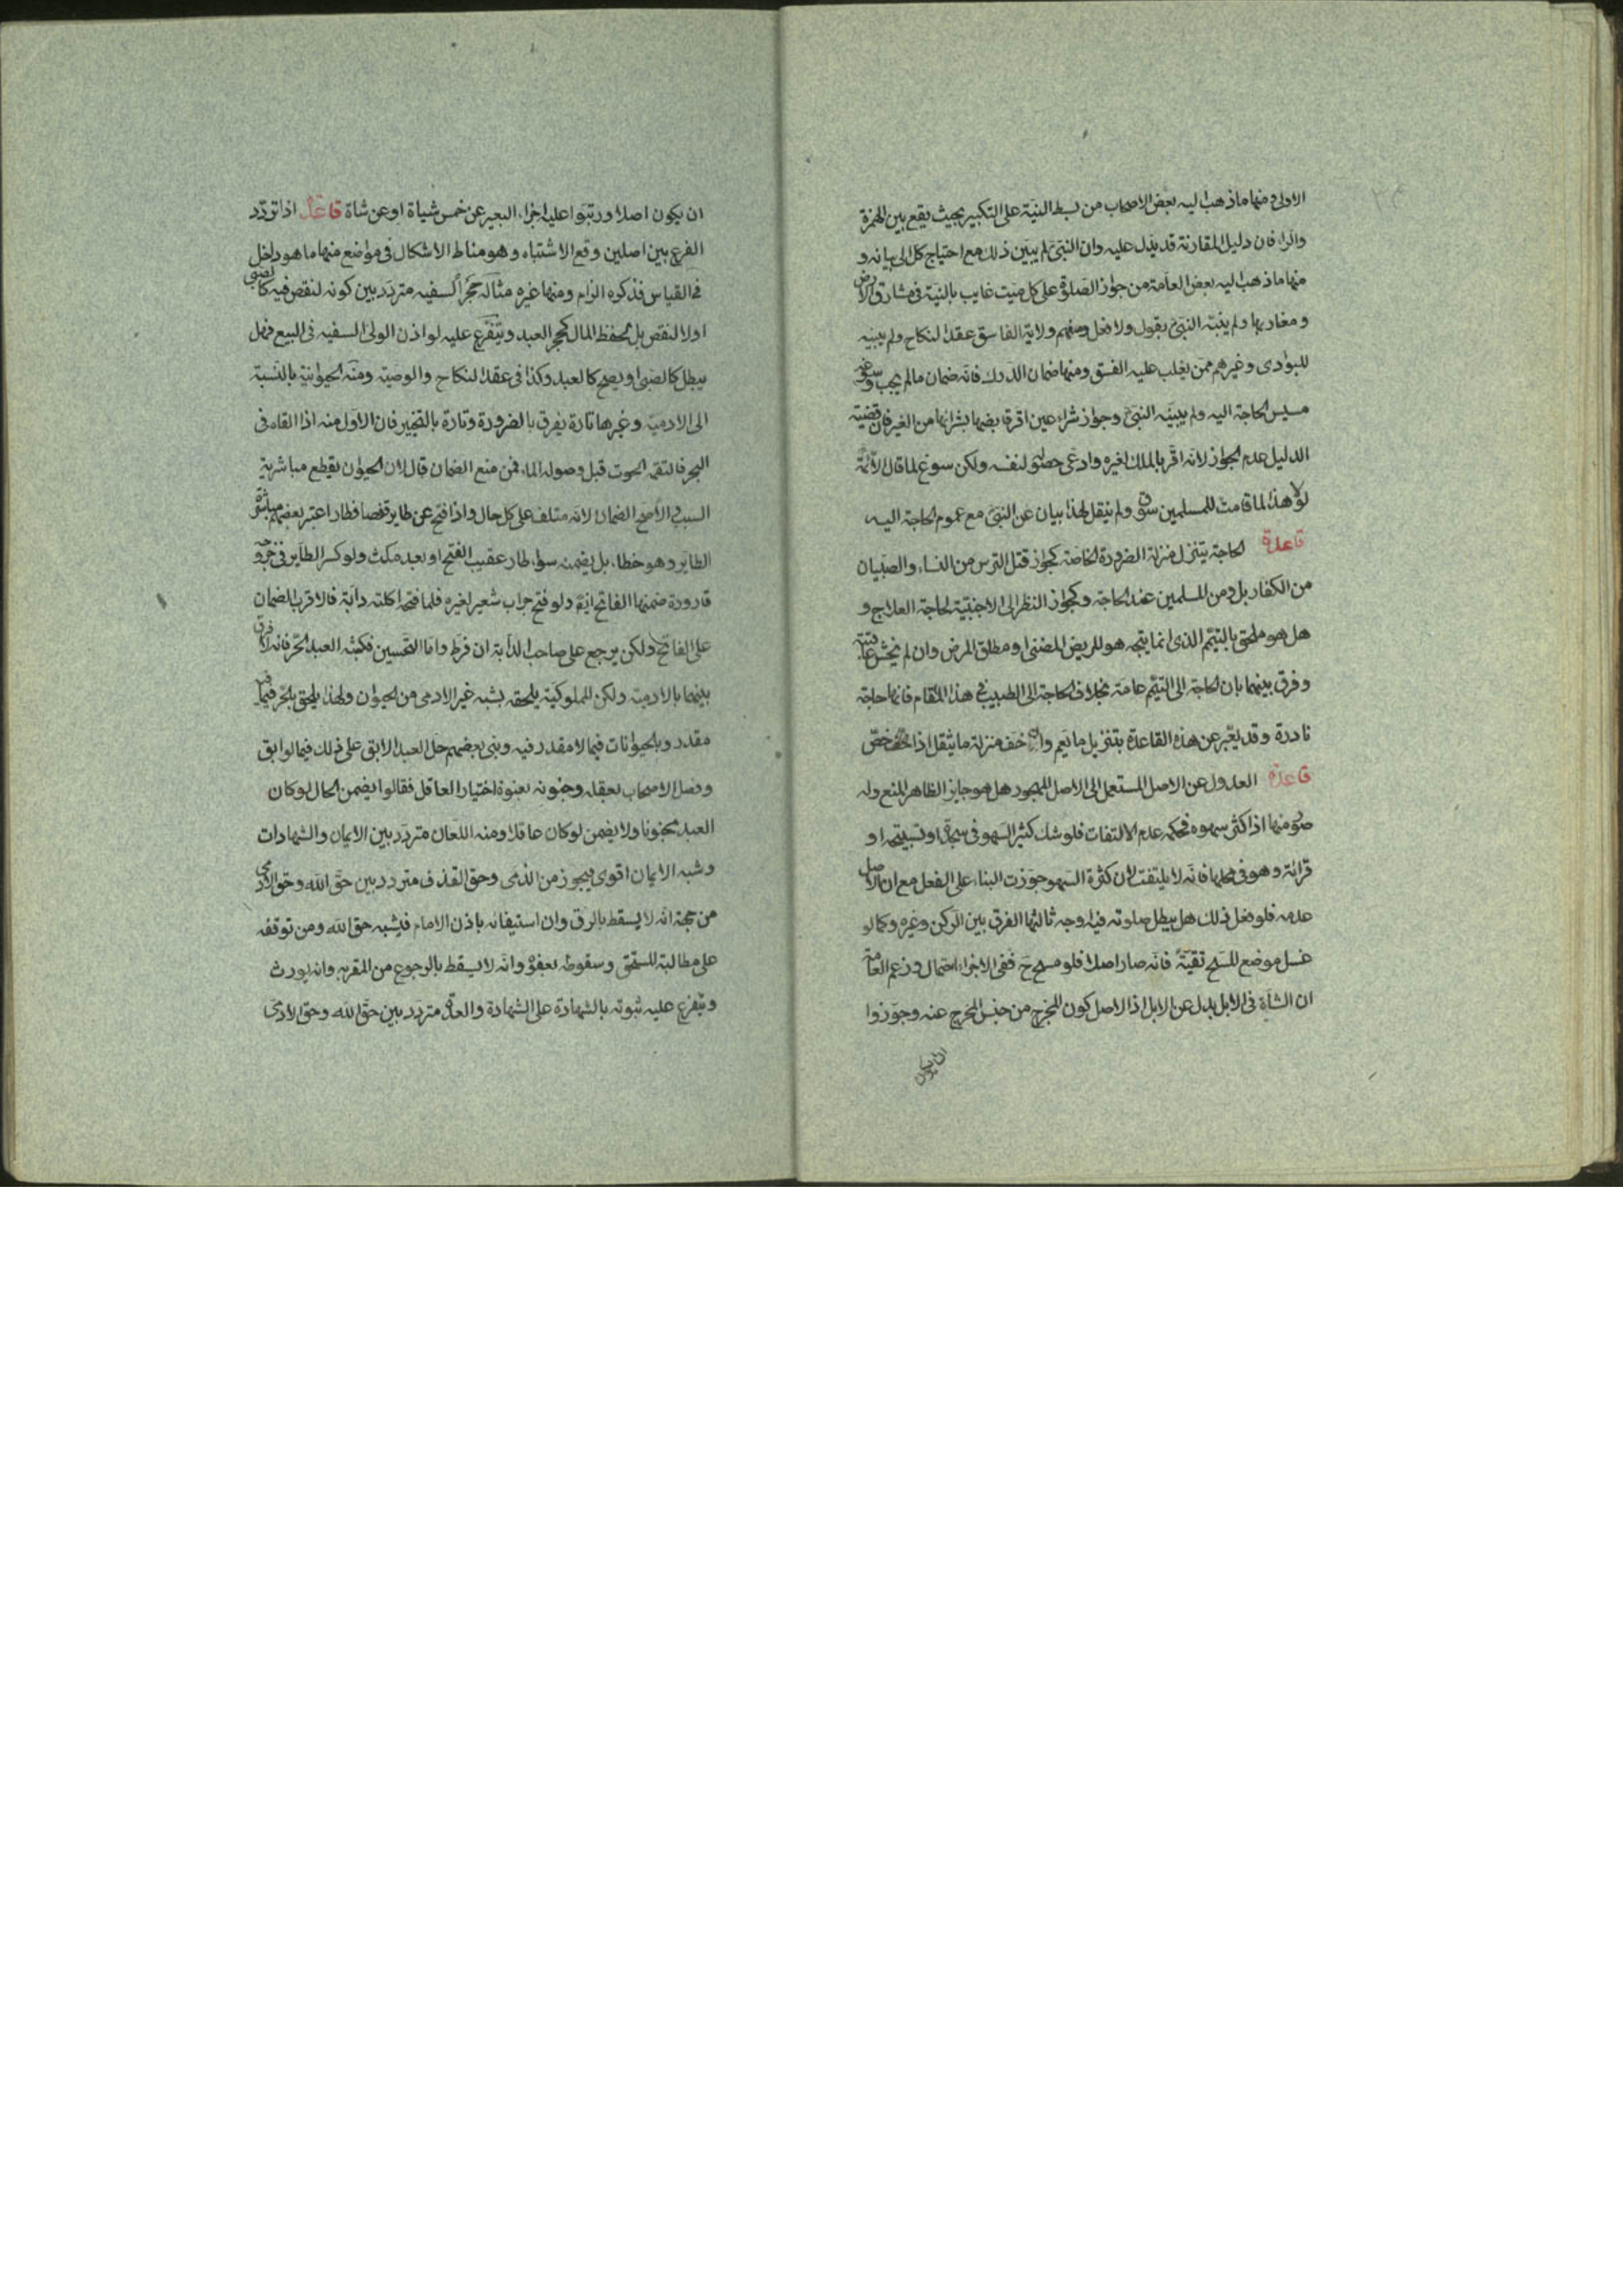 الاولى ومنها ما ذهب اليه بعض الاصحاب من بسط النية على التكبير بحيث يقع بين الهمزة
والراء فان دليل المقارنة قد يدل عليه وان النبي لم يبين ذلك مع احتياج كل الى بيانه و
منها ما ذهب اليه بعض العامة من جواز الصلوة على كل ميت غايب بالنية فى مشارق الارض
ومغاربها ولم يبينه النبى بقول ولا فعل ومنهم ولاية الفاسق عقد النكاح ولم يبينه
للبوادى وغيرهم ممن يغلب عليه الفسق ومنها ضمان الدرك فانه ضمان ما لم يجب وسوغه
مسيس الحاجة اليه ولم يبينه النبى وجواز شراء عين اقر قابضها بشرائها من الغير فان قضية
الدليل عدم الجواز لانه اقر بالملك لغيره وادعى حصلتى لنفسه ولكن سوغ لما قال الائمة
لولا هذا لما قامت للمسلمين سوق ولم ينقل لهذا بيان عن النبى مع عموم الحاجة اليه
قاعدة الحاجة يتنزل منزلة الضرورة الخاصة كجواز قتل الترس من النساء والصبيان
من الكفار بل ومن المسلمين عند الحاجة وكجواز النظر الى الاجنبية لحاجة العلاج و
هل هو ملحق بالتيمم الذى انما يتجه هو للريض المضنى او مطلق المرض وان لم يخش عاقبته
وفرق بينهما بان الحاجة الى التيمم عامة بخلاف الحاجة الى الطبيب فى هذا المقام فانها حاجة
نادرة وقد يعبر عن هذه القاعدة بتنزيل ما يعم وان خف منزلة ما يثقل اذا خص
قاعدة العدول عن الاصل المستعمل الى الاصل المهجور هل هو جايز الظاهر المنع وله
صور منها اذا كثر سهوه فحكمه عدم الالتفات فلو شك كثير السهو فى سجدة او تسبيحة او
قرائة وهو فى محلها فانه لا يلتفت لان كثرة السهو جوزت البناء على الفعل مع ان الاصل
عدمه فلو فعل ذلك هل يبطل صلوته فيه اوجه ثالثها الفرق بين الركن وغيره وكما لو
غسل موضع المسح تقية فانه صار اصلا فلو مسح ح ففى الاجزاء احتمال وزعم العامة
ان الشاة فى الابل بدل عن الابل اذ الاصل كون المخرج من جنس المخرج عنه وجوزوا
ان يكون
ان يكون اصلا ورتبوا عليه اجزاء البعير عن خمس شياة او عن شاة قاعدة اذا تردد
الفرع بين اصلين وقع الاشتباه وهو مناط الاشكال فى مواضع منها ما هو داخل
فى القياس فذكره الزام ومنها غيره مثاله حجر السفيه متردد بين كونه لنقص فيه كالصبى
او لا لنقص بل لحفظ المال كحجر العبد ويتفرع عليه لو اذن الولى السفيه فى البيع فهل
يبطل كالصبى او يصح كالعبد وكذا فى عقد النكاح والوصية ومنه الحيوانية بالنسبة
الى الادمية وغيرها تارة يفرق بالضرورة وتارة بالتخيير فان الاول منه اذا القاه فى
البحر فالتقمه الحوت قبل وصوله الماء فمن منع الضمان قال لان الحيوان يقطع مباشرية
السبب والاصح الضمان لانه متلف على كل حال واذا فتح عن طاير قفصا فطار اعتبر بعضهم مباشرة
الطاير وهو خطاء بل يضمنه سواء طار عقيب الفتح او بعد مكث ولو كسر الطاير فى خروجه
قارورة ضمنها الفاتح ايضا ولو فتح جراب شعير لغيره فلما فتحه اكلته دابة فالاقرب الضمان
على الفاتح ولكن يرجع على صاحب الدابة ان فرط واما التحسين فكشبه العبد الحر فانه لا فرق
بينهما بالادمية ولكن المملوكية يلحقه بشبه غير الادمى من الحيوان ولهذا يلحق بالحر فيما فيه
مقدر وبالحيوانات فيما لا مقدر فيه وبنى بعضهم حل العبد الابق على ذلك فيما لو ابق
وفصل الاصحاب بعقله وجنونه بعنوة اختيار العاقل فقالوا يضمن الحال لو كان
العبد مجنونا ولا يضمن لو كان عاقلا ومنه اللعان متردد بين الايمان والشهادات
وشبه الايمان اقوى فيجوز من الذمى وحق القذف متردد بين حق الله وحق الادمى
من جهة انه لا يسقط بالرق وان استيفائه باذن الامام فيشبه حق الله ومن توقفه
على مطالبة المستحق وسقوطه بعفوه وانه لا يسقط بالرجوع من المقر به وانه يورث
ويتفرع عليه ثبوته بالشهادة على الشهادة والعدة متردد بين حق الله وحق الادمى